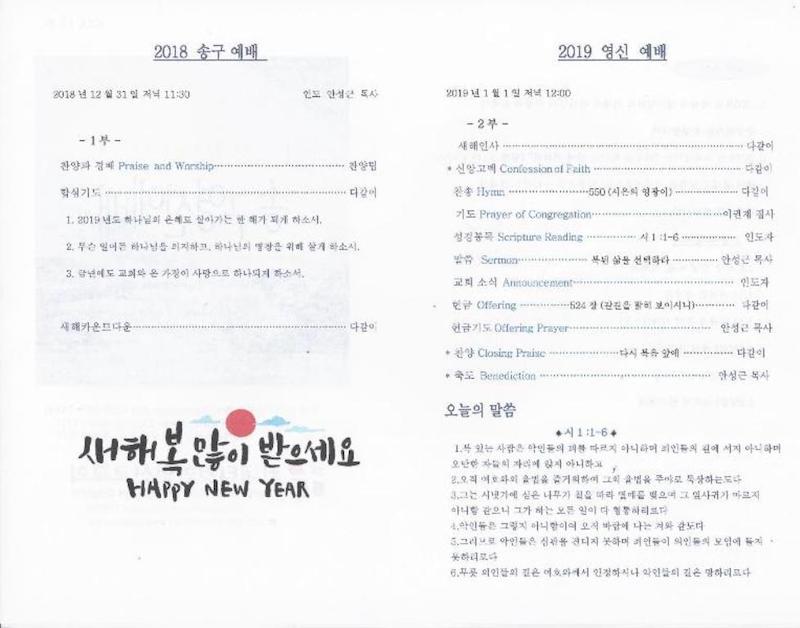 2018 송구 예배
2018년 12월 31일 저녁 11:30 인도 안성근 목사
- 1부 -
찬양과 경배 Praise and Worship 찬양팀
합심기도 다같이
1. 2019년도 하나님의 은혜로 살아가는 한 해가 되게 하소서.
2. 무슨 일이든 하나님을 의지하고, 하나님의 영광을 위해 살게 하소서.
3. 금년에도 교회와 온 가정이 사랑으로 하나되게 하소서.
새해카운트다운 다같이
새해 복 많이 받으세요
HAPPY NEW YEAR
2019 영신 예배
2019년 1월 1일 저녁 12:00
- 2부 -
새해인사 다같이
* 신앙고백 Confession of Faith 다같이
찬송 Hymn 550 (시온의 영광이) 다같이
기도 Prayer of Congregation 이권재 집사
성경봉독 Scripture Reading 시 1:1-6 인도자
말씀 Sermon 복된 삶을 선택하라 안성근 목사
교회 소식 Announcement 인도자
헌금 Offering 524 장 (갈길을 밝히 보이시니) 다같이
헌금기도 Offering Prayer 안성근 목사
* 찬양 Closing Praise 다시 복음 앞에 다같이
* 축도 Benediction 안성근 목사
오늘의 말씀
◆시 1:1-6◆
1.복 있는 사람은 악인들의 꾀를 따르지 아니하며 죄인들의 길에 서지 아니하며
오만한 자들의 자리에 앉지 아니하고
2.오직 여호와의 율법을 즐거워하여 그의 율법을 주야로 묵상하는도다
3.그는 시냇가에 심은 나무가 철을 따라 열매를 맺으며 그 잎사귀가 마르지
아니함 같으니 그가 하는 모든 일이 다 형통하리로다
4.악인들은 그렇지 아니함이여 오직 바람에 나는 겨와 같도다
5.그러므로 악인들은 심판을 견디지 못하며 죄인들이 의인들의 모임에 들지
못하리로다
6.무릇 의인들의 길은 여호와께서 인정하시나 악인들의 길은 망하리로다